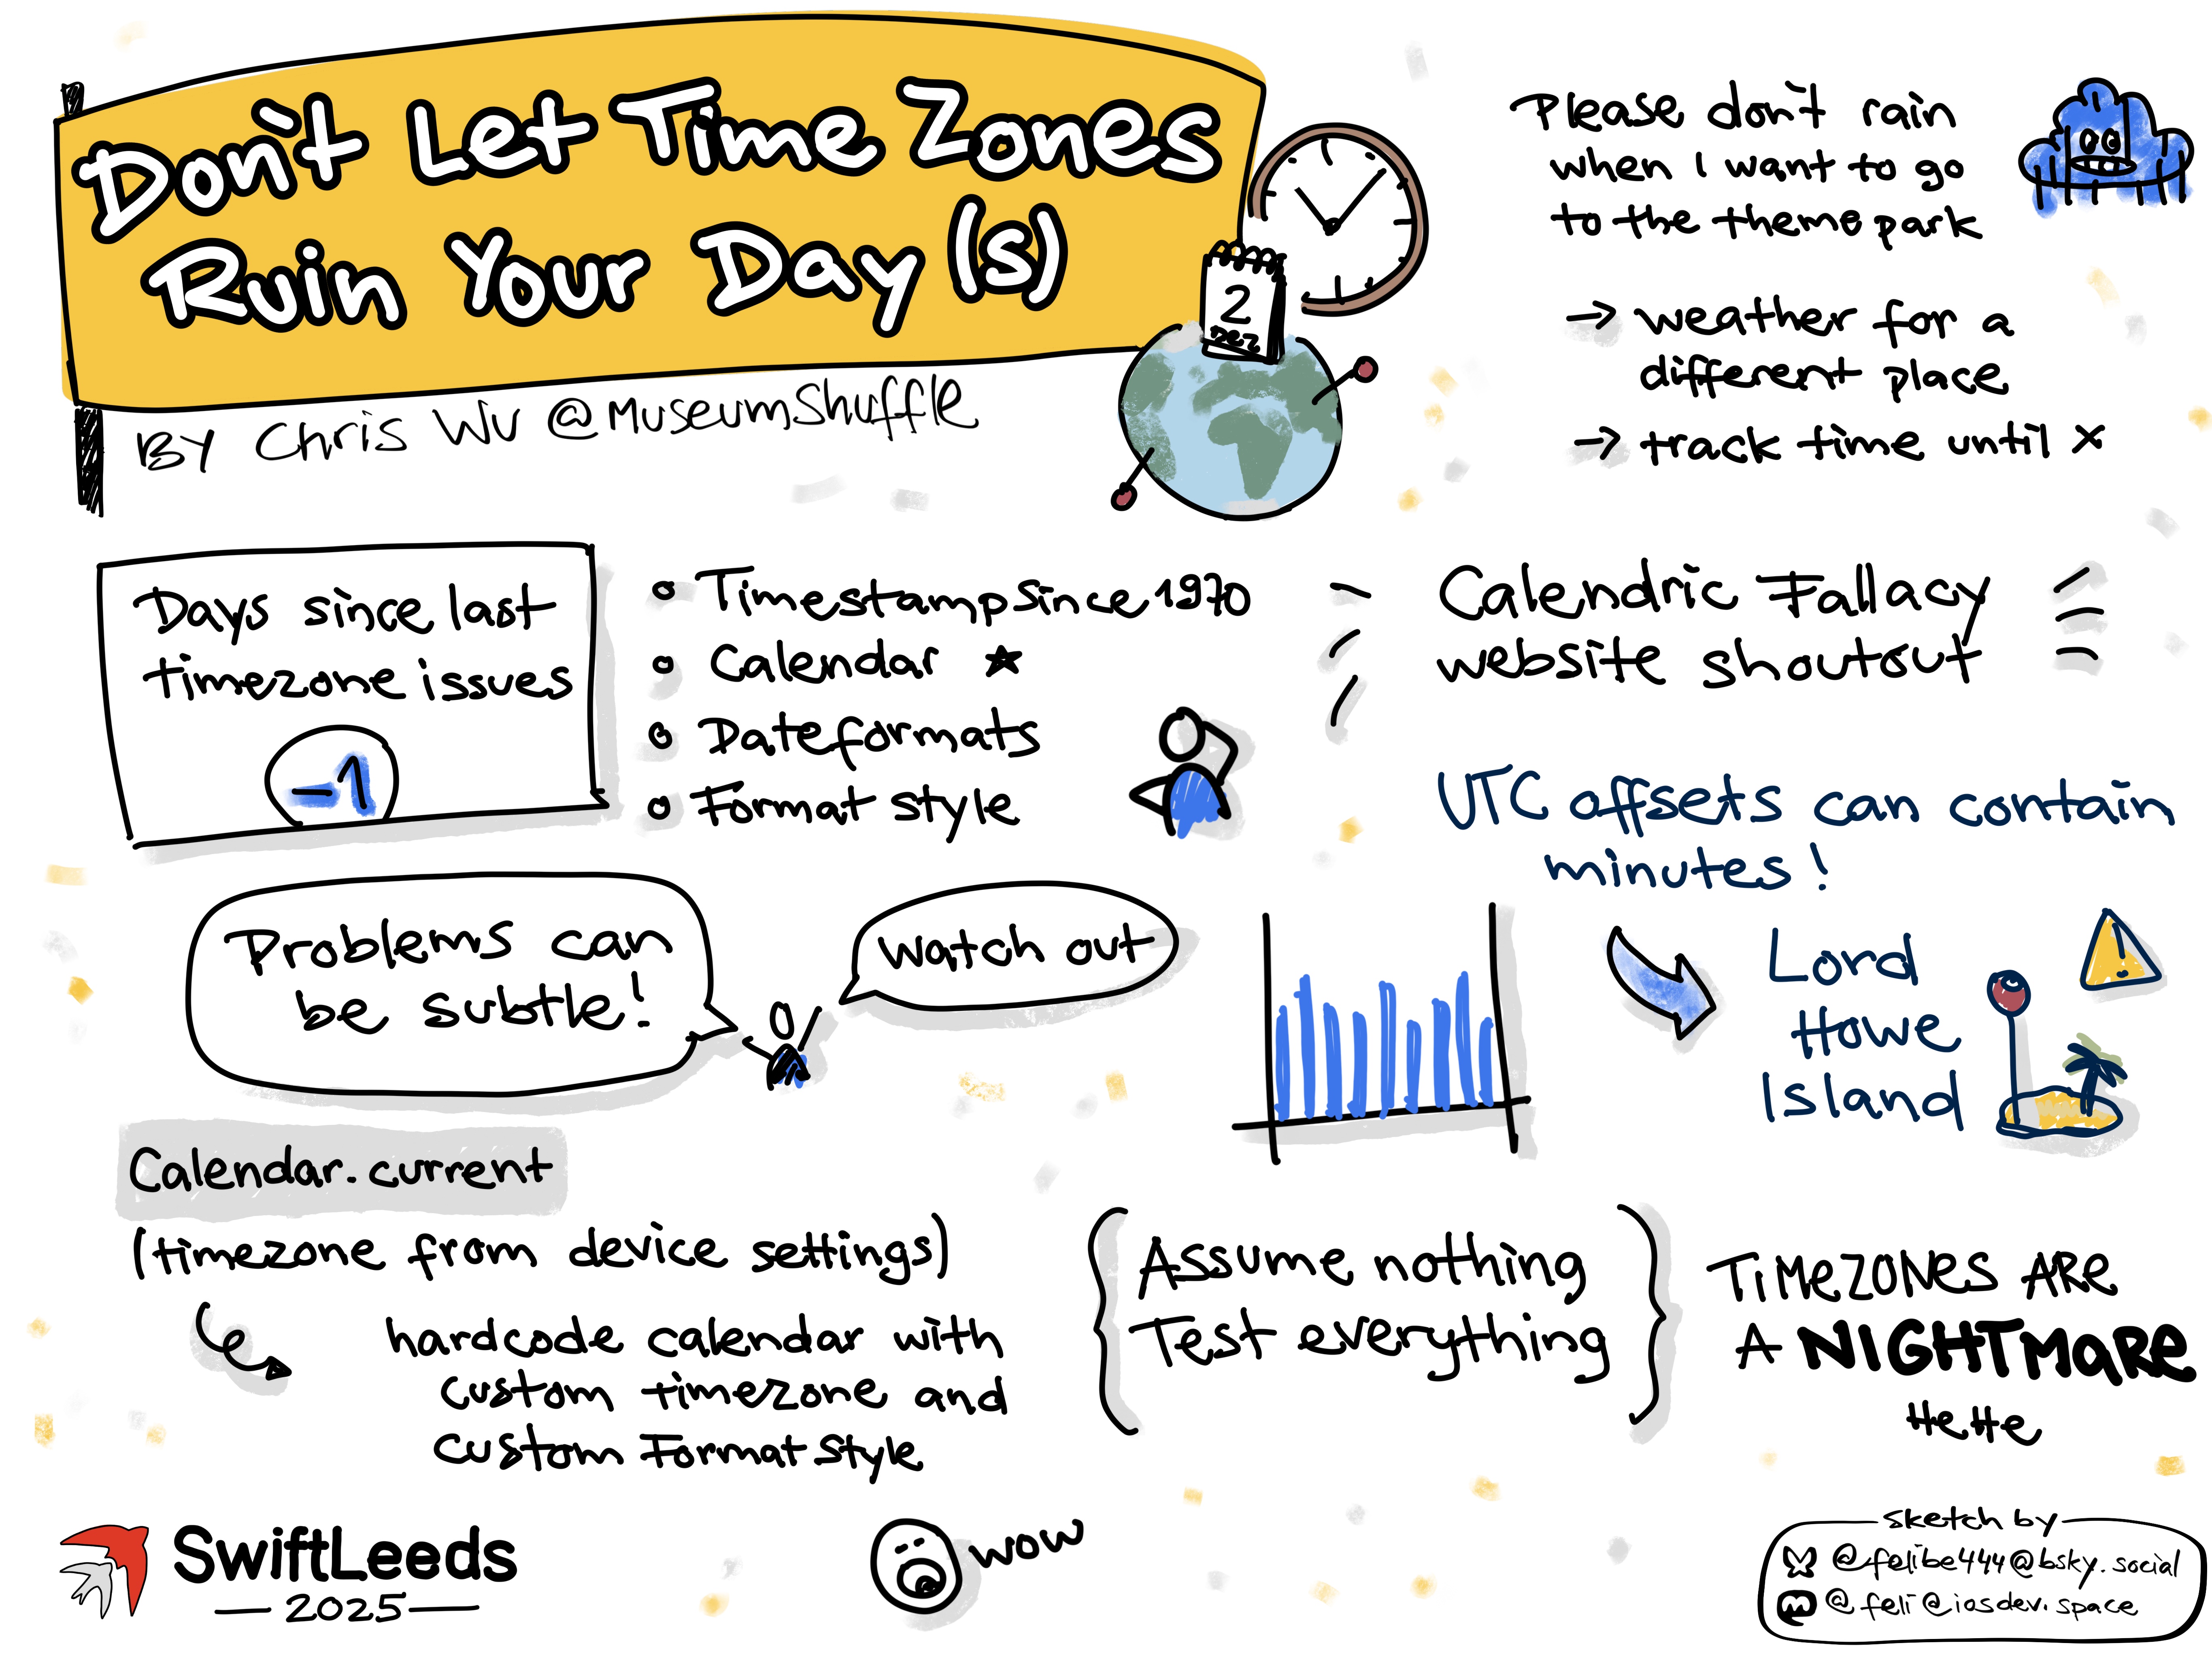 Don't Let Time Zones
Ruin Your Day(s)
BY Chris Wu @MuseumShuffle
2
DEZ
Please don't rain
when I want to go
to the theme park
→ weather for a
different place
→ track time until X
Days since last
timezone issues
-1
Timestamp since 1970
Calendar ★
Dateformats
Format style
Calendric Fallacy
website shoutout
UTC offsets can contain
minutes!
Lord
Howe
Island
!
Problems can
be subtle!
Watch out
Calendar.current
(timezone from device settings)
hardcode calendar with
custom timezone and
custom Format Style
{ Assume nothing
Test everything }
TiMEZONES ARE
A NIGHTMARE
HeHe
SwiftLeeds
— 2025 —
wow
sketch by
@felibe444@bsky.social
@feli@iosdev.space